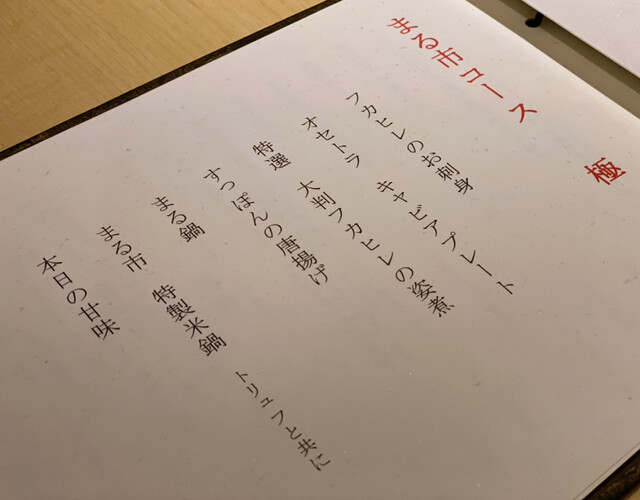 まる市コース　極
フカヒレのお刺身
オセトラ　キャビアプレート
特選　大判フカヒレの姿煮
すっぽんの唐揚げ
まる鍋
まる市　特製米鍋　トリュフと共に
本日の甘味